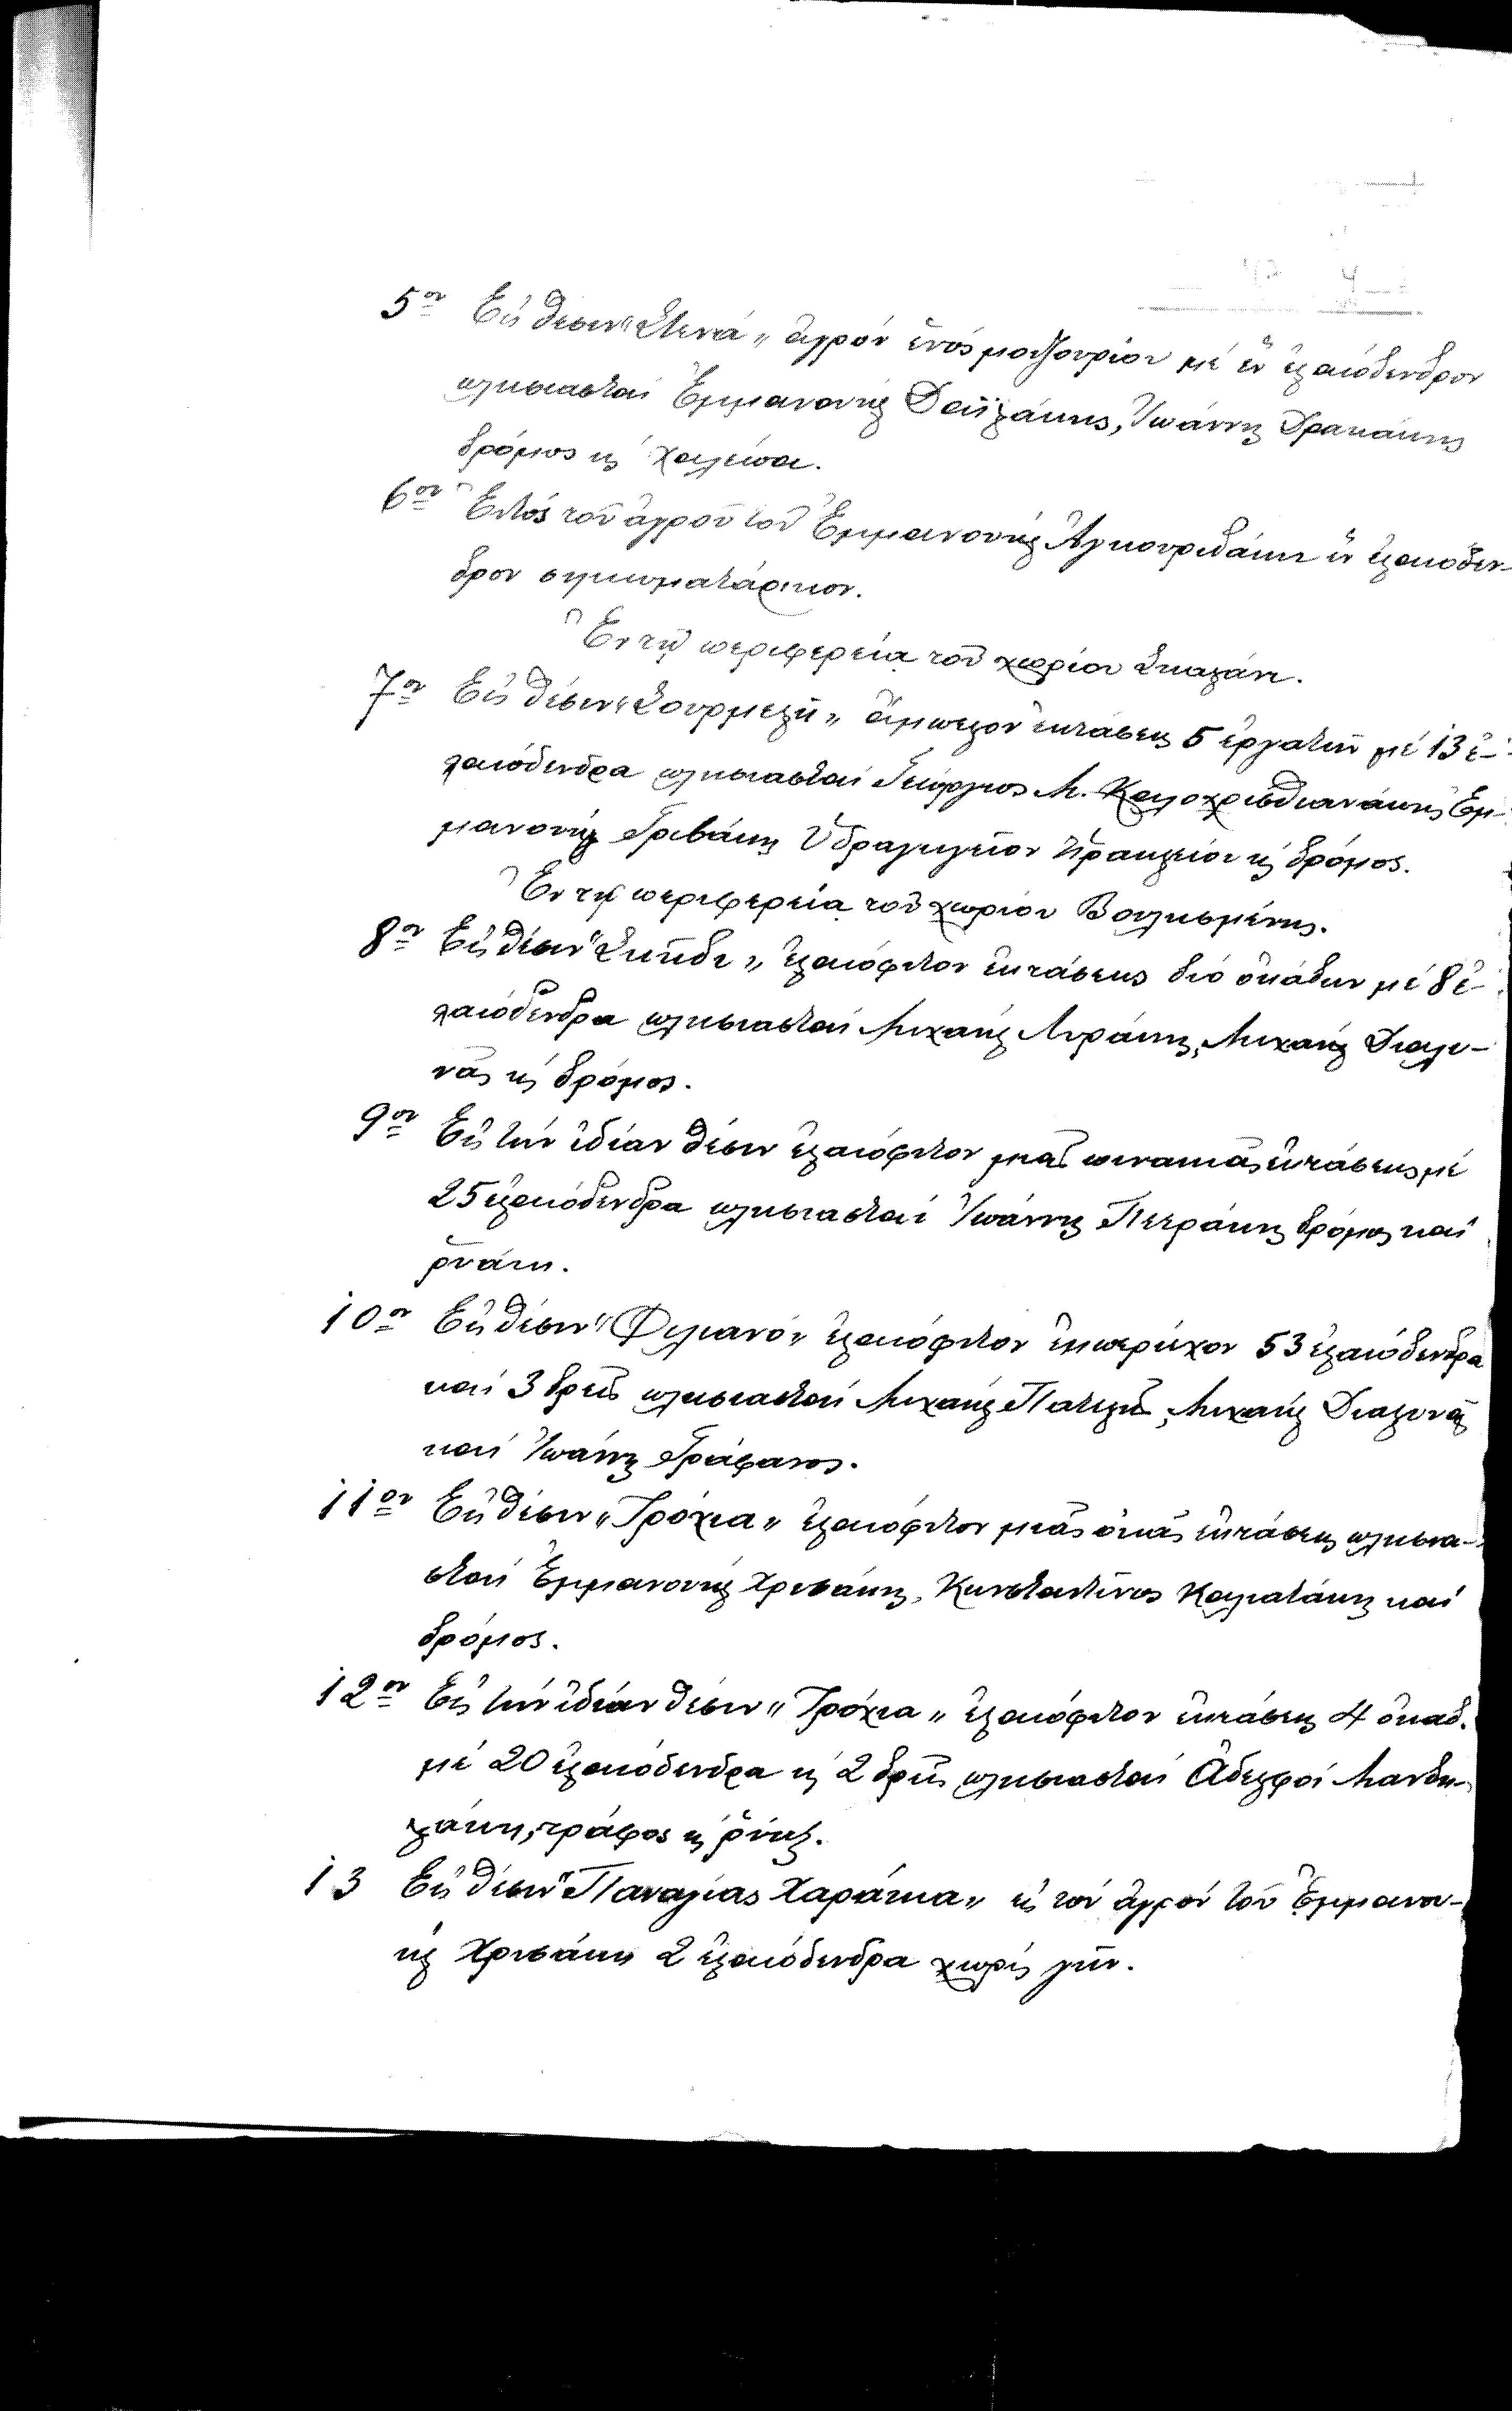 5ον Εἰς θέσιν "Στενά" ἀγρόν ἑνός μουζουρίου μέ ἕν ἐλαιόδενδρον
πλησιασταί Ἐμμανουήλ Δαϊλάκης, Ἰωάννης Δρακάκης
δρόμος κ' χαλέπα.
6ον Ἐντός τοῦ ἀγροῦ τοῦ Ἐμμανουήλ Ἀγκουριδάκη ἕν ἐλαιόδεν-
δρον σηκωματάρικον.
Ἐν τῇ περιφερείᾳ τοῦ χωρίου Σκαλάνι.
7ον Εἰς θέσιν "Σουρμελῆ" ἄμπελον ἐκτάσεως 5 ἐργατῶν μέ 13 ἐ-
λαιόδενδρα πλησιασταί Γεώργιος Μ. Καλοχριστιανάκης Ἐμ-
μανουήλ Γριβάκης Ὑδραγωγεῖον Ἡρακλείου κ' δρόμος.
Ἐν τῇ περιφερείᾳ τοῦ χωρίου Βουλισμένης.
8ον Εἰς θέσιν ἐλαιόφυτον ἐκτάσεως δύο ὀκάδων μέ 8 ἐ-
λαιόδενδρα πλησιασταί Μιχαήλ Λυράκης, Μιχαήλ Διαλυ-
νᾶς κ' δρόμος.
9ον Εἰς τήν ἰδίαν θέσιν ἐλαιόφυτον μιᾶς πινακιᾶς ἐκτάσεως μέ
25 ἐλαιόδενδρα πλησιασταί Ἰωάννης Πετράκης δρόμος καί
ρυάκι.
10ον Εἰς θέσιν ἐλαιόφυτον ἐμπεριέχον 53 ἐλαιόδενδρα
καί 3 δρῦς πλησιασταί Μιχαήλ Πατελῆς, Μιχαήλ Διαλυνᾶς
καί Ἰωάννης Γράφανος.
11ον Εἰς θέσιν "Τρόχια" ἐλαιόφυτον μιᾶς ὀκᾶς ἐκτάσεως πλησια-
σταί Ἐμμανουήλ Χρυσάκης, Κωνσταντῖνος Καλιατάκης καί
δρόμος.
12ον Εἰς τήν ἰδίαν θέσιν "Τρόχια" ἐλαιόφυτον ἐκτάσεως 4 ὀκάδ.
μέ 20 ἐλαιόδενδρα κ' 2 δρῦς πλησιασταί Ἀδελφοί Μανδη-
λάκη, τράφος κ' ρύαξ.
13 Εἰς θέσιν "Παναγίας Χαράκια" εἰς τόν ἀγρόν τοῦ Ἐμμανου-
ήλ Χρυσάκη 2 ἐλαιόδενδρα χωρίς γῆν.